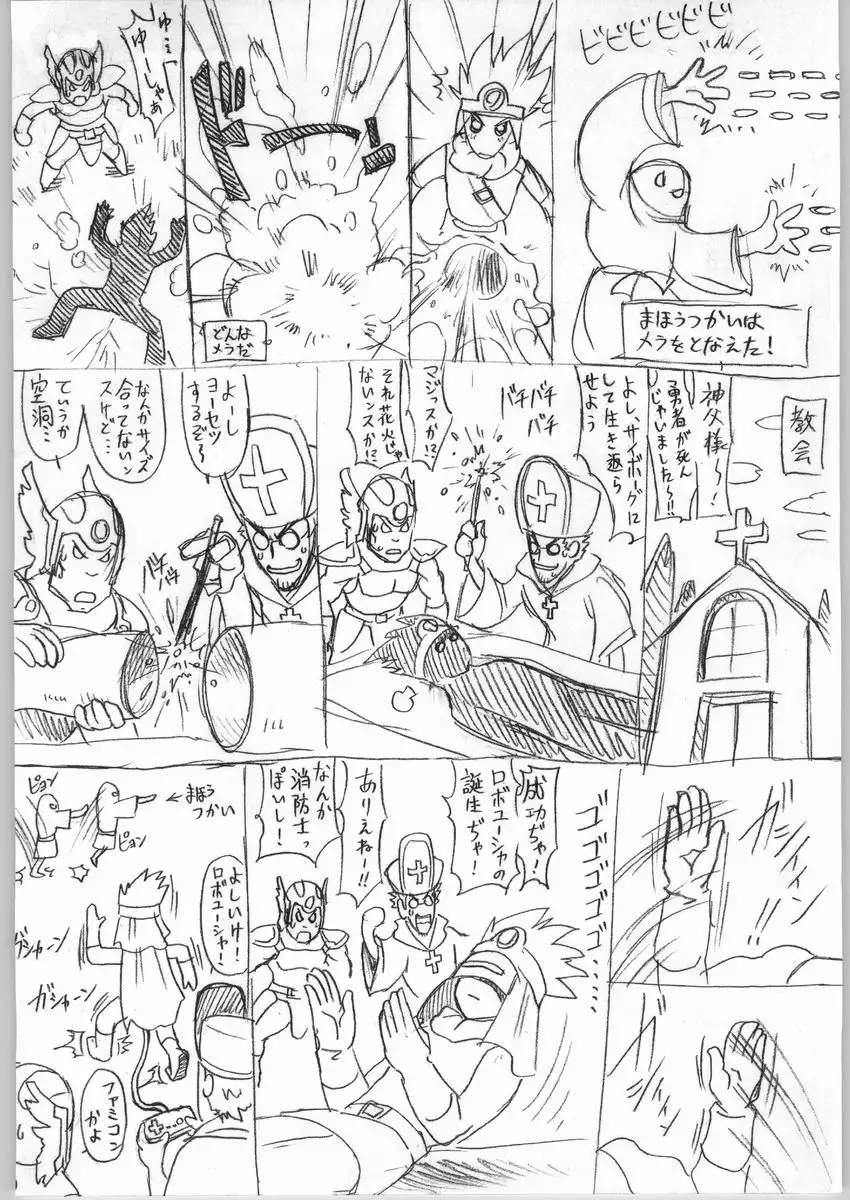 ビビビビビビ
まほうつかいは
メラをとなえた!
どんな
メラだ
ゆ…っ
ゆーしゃあ
教会
神父様~!
勇者が死ん
じゃいました~!!
よし、サイボーグに
して生き返ら
せよう
バチバチ
バチ
マジっスか!?
それ花火じゃ
ないンスか!?
よーし
ヨーセツ
するぞ~
バチバチ
なんかサイズ
合ってないン
スけど…
ていうか
空洞…
ゴゴゴゴゴゴ……
成功ぢゃ!
ロボユーシャの
誕生ぢゃ!
ありえねー!!
なんか
消防士っ
ぽいし!
まほう
つかい
ピョン
ピョン
よしいけ!
ロボユーシャ!
ガシャーン
ガシャーン
ファミコン
かよ